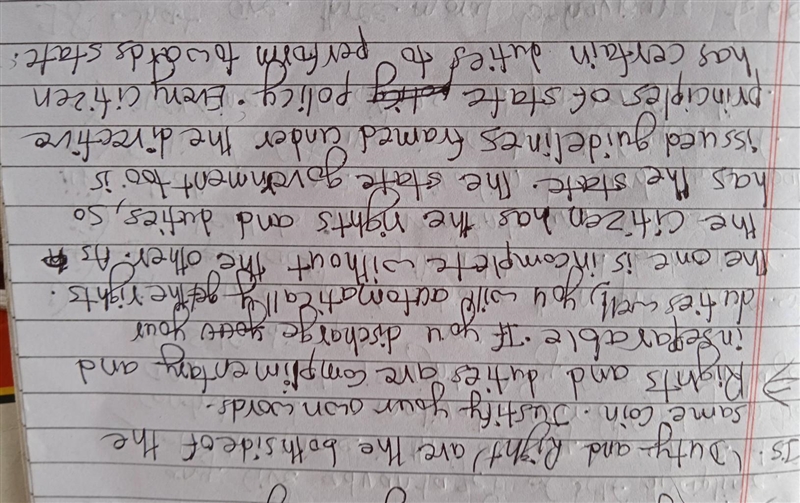 Is. (Duty and Right) are the both side of the
same coin. Justify your own words.
⇒ Rights and duties are complimentary and
inseparable. If you discharge your
duties well, you will automatically get the rights.
The one is incomplete without the other. As
the citizen has the rights and duties, so
has the state. The state government too is
issued guidelines framed under the directive
principles of state policy. Every citizen
has certain duties to perform towards state: